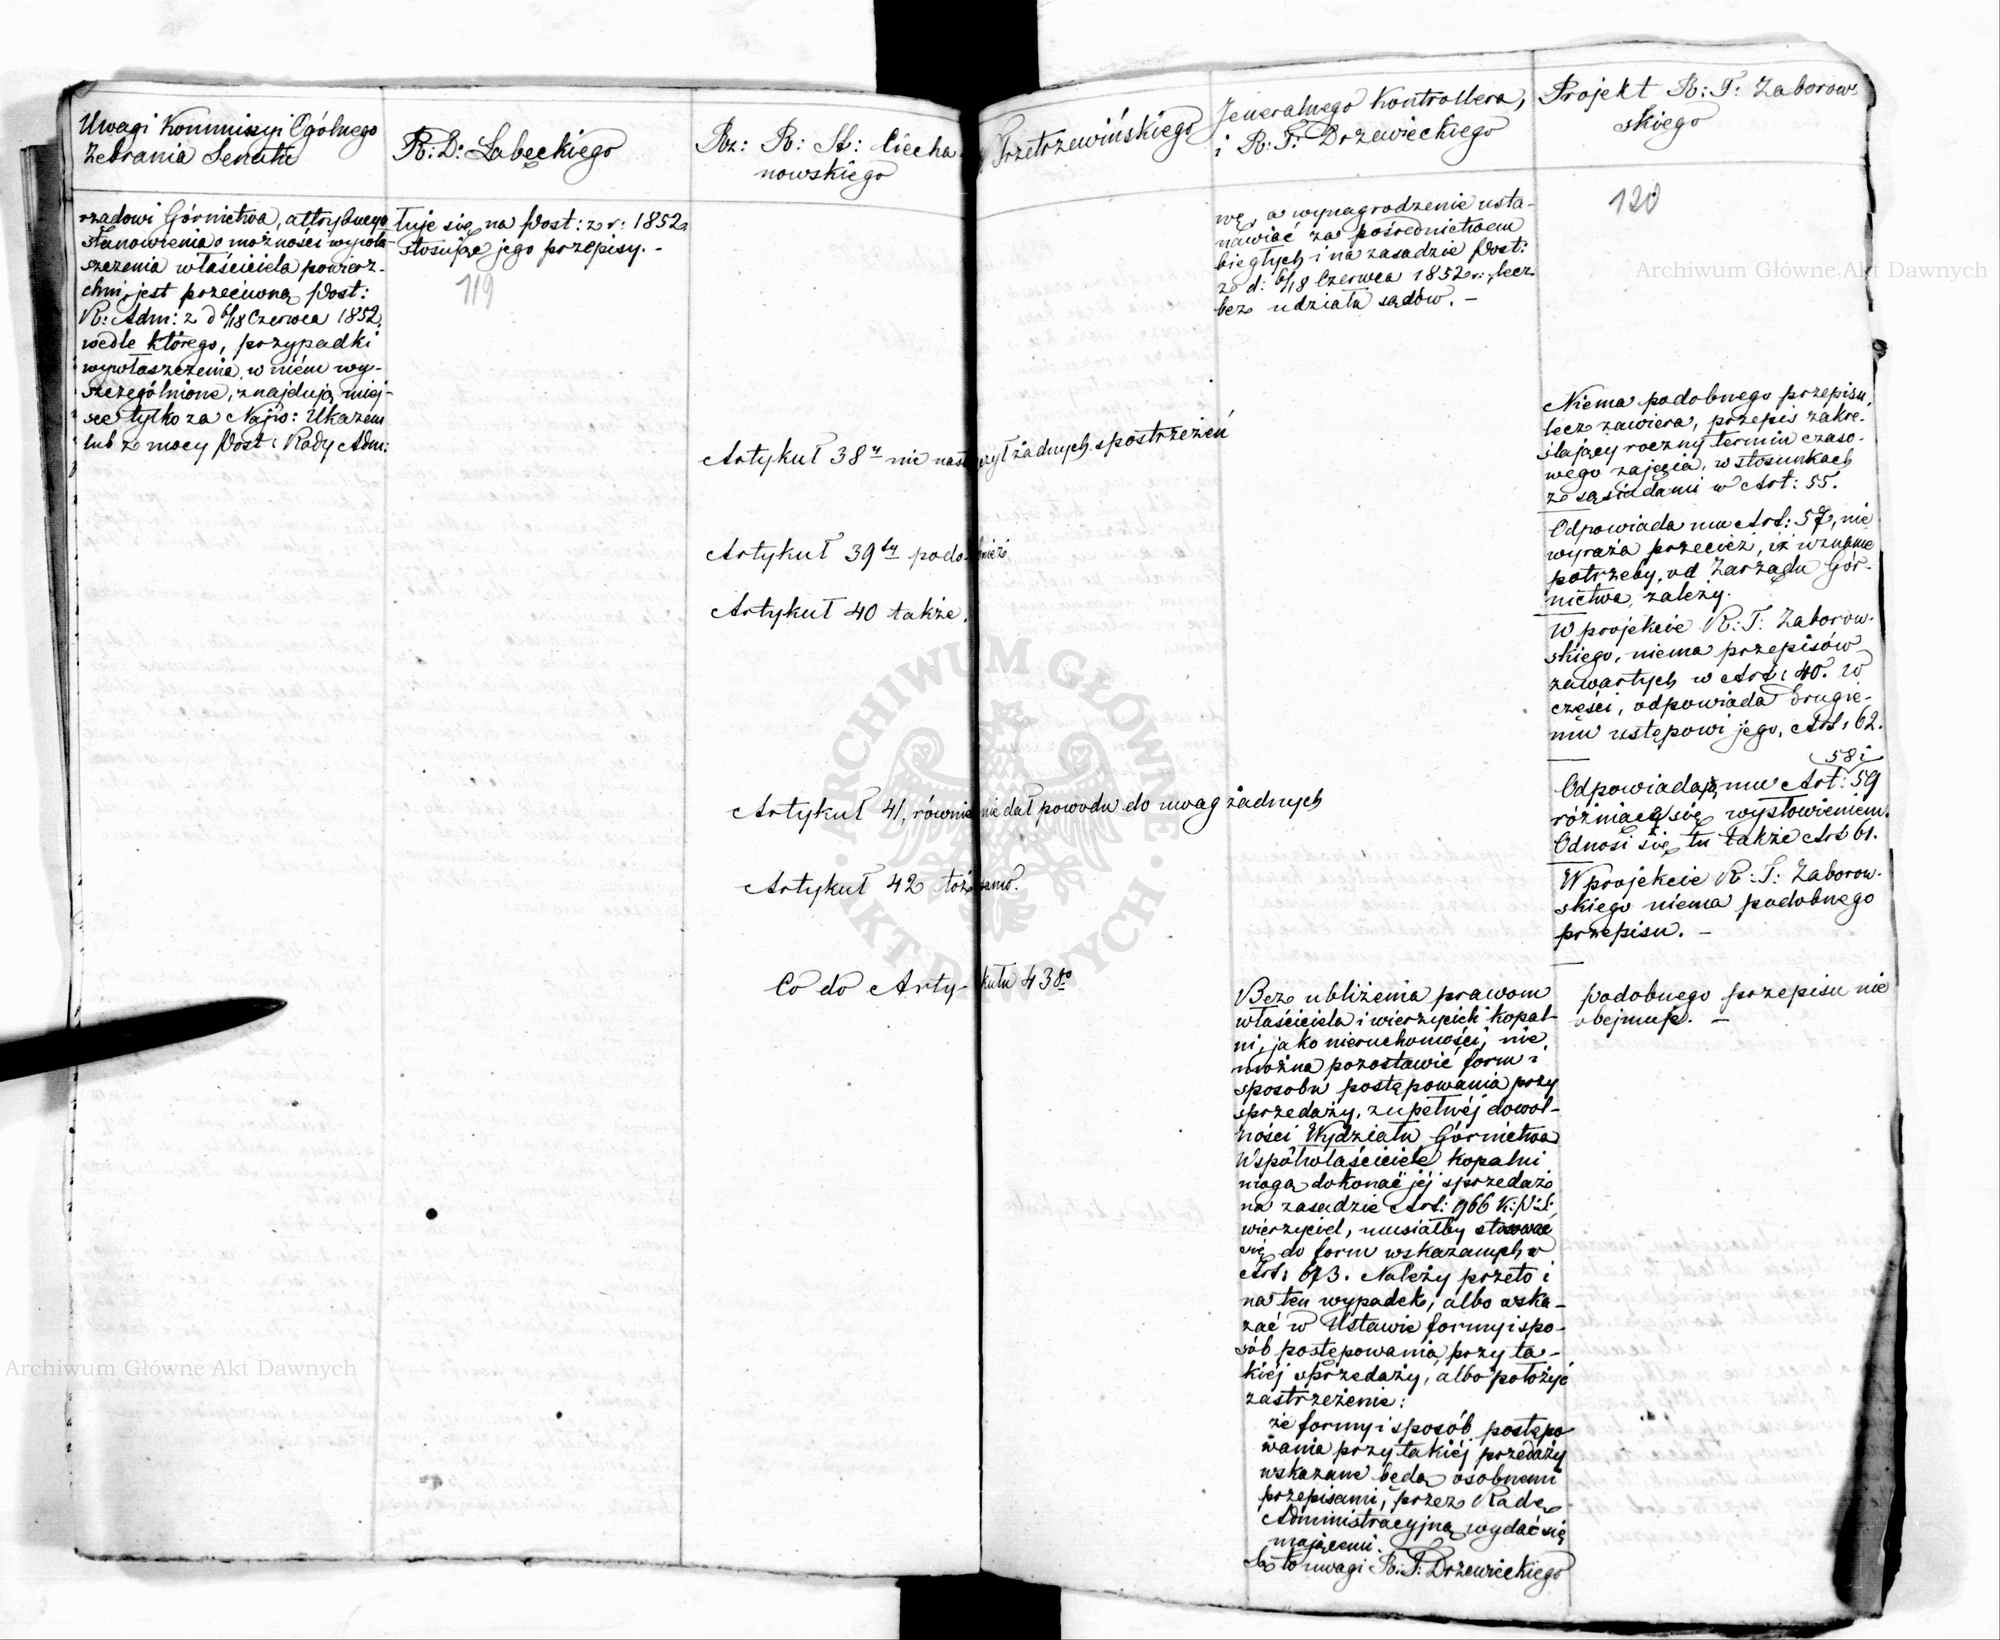 Uwagi Kommissyi Ogólnego
Zebrania Senatu
rządowi Górnictwa, attrybucya
stanowienia o możności wywła-
szczenia właściciela powierz-
chni, jest przeciwną Post:
R: Adm: z d 6/18 Czerwca 1852,
wedle którego, przypadki
wywłaszczenia w niém wy-
szczególnione, znajdują miej-
sce tylko za Najw: Ukazem
lub z mocy Post: Rady Adm:
R: D: Łabęckiego
tuje się na Post: z r: 1852
stosując jego przepisy. -
119
Rz: R: St: Ciecha
nowskiego
Przetrzewińskiego
Artykuł 38y nie nastręczył żadnych spostrzeżeń
Artykuł 39ty podobnież
Artykuł 40 także.
Artykuł 41, równie nie dał powodu do uwag żadnych
Artykuł 42 toż samo.
Co do Artykułu 43go
Jeneralnego Kontrollera,
i R: T: Drzewieckiego
wę, a wynagrodzenie usta-
nawiać za pośrednictwem
biegłych i na zasadzie Post:
z d: 6/18 Czerwca 1852 r: lecz
bez udziału sądów. -
Bez ubliżenia prawom
właściciela i wierzycieli kopal-
ni, jako nieruchomości, nie
można pozostawić form i
sposobu postępowania przy
sprzedaży, zupełnéj dowol-
ności Wydziału Górnictwa
Współwłaściciele kopalni
mogą dokonać jéj sprzedaż
na zasadzie Art: 966 K: P: S:
wierzyciel, musiałby stosować
się do form wskazanych w
Art: 673. Należy przeto i
na ten wypadek, albo wska-
zać w Ustawie formy i spo-
sób postępowania przy ta-
kiéj sprzedaży, albo położyć
zastrzeżenie:
że formy i sposób postępo
wania przy takiéj przedaży
wskazane będą osobnemi
przepisami, przez Radę
Administracyjną wydać się
mającemi.
Są to uwagi R: T: Drzewieckiego
Projekt R: T: Zaborow-
skiego
120
Niema podobnego przepisu,
lecz zawiera, przepis zakre-
ślający roczny termin czaso-
wego zajęcia, w stosunkach
ze sąsiadami w Art: 55.
Odpowiada mu Art: 57, nie
wyraża przecież, iż uznanie
potrzeby, od Zarządu Gór-
nictwa, zależy.
W projekcie R: T: Zaborow-
skiego, niema przepisów
zawartych w Art: 40. W
części, odpowiada drugie-
mu ustępowi jego, Art: 62.
58 i
Odpowiadają mu Art: 59
różniące się wysłowieniem.
Odnosi się tu także Art 61.
W projekcie R: T: Zaborow-
skiego niema podobnego
przepisu. -
podobnego przepisu nie
obejmuje. -
ARCHIWUM GŁÓWNE AKT DAWNYCH
Archiwum Główne Akt Dawnych
Archiwum Główne Akt Dawnych